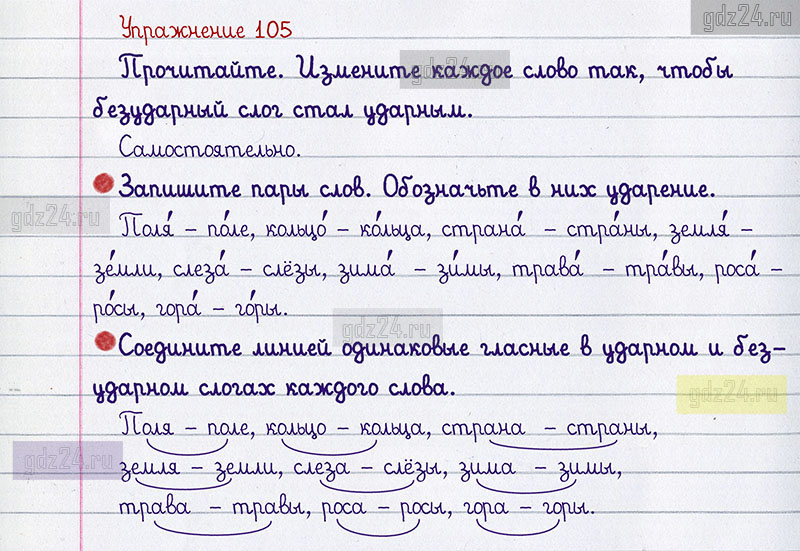 gdz24.ru
Упражнение 105
Прочитайте. Измените каждое слово так, чтобы
gdz24.ru
безударный слог стал ударным.
Самостоятельно.
Запишите пары слов. Обозначьте в них ударение.
gdz24.ru
Поля́ – по́ле, кольцо́ – ко́льца, страна́ – стра́ны, земля́ –
зе́мли, слеза́ – слёзы, зима́ – зи́мы, трава́ – тра́вы, роса́ –
ро́сы, гора́ – го́ры.
gdz24.ru
Соедините линией одинаковые гласные в ударном и без-
ударном слогах каждого слова.
gdz24.ru
Поля – поле, кольцо – кольца, страна – страны,
gdz24.ru
земля – земли, слеза – слёзы, зима – зимы,
трава – травы, роса – росы, гора – горы.